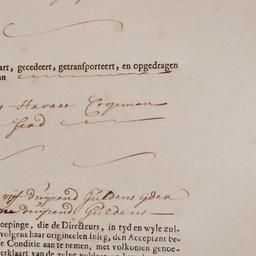 art, gecedeert, getransporteert, en opgedragen
an
Havart Coopman
Stad
vijf duijzend Guldens ijder
duijzend Guldens
oepinge, die de Directeurs, in tyd en wyle zul-
volgens haar origineelen Inleg, den Acceptant be-
e Conditie aan te nemen, met volkomen genoe-
erklaart van de zelve